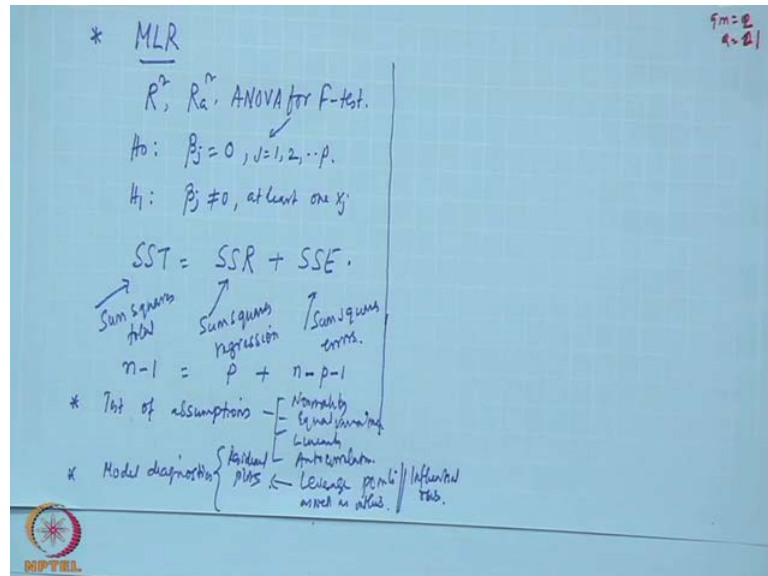 * MLR
R², Ra². ANOVA for F-test.
H0: βj = 0, J=1, 2, ..p.
H1: βj ≠ 0, at least one xj
SST = SSR + SSE.
Sum squares total
Sum squares regression
Sum squares errors.
n-1 = p + n-p-1
* Test of assumptions
Normality
Equal variance
Linearity
Autocorrelation.
* Model diagnostics
Residual plots
Leverage points
as well as
Influential obs.
NPTEL